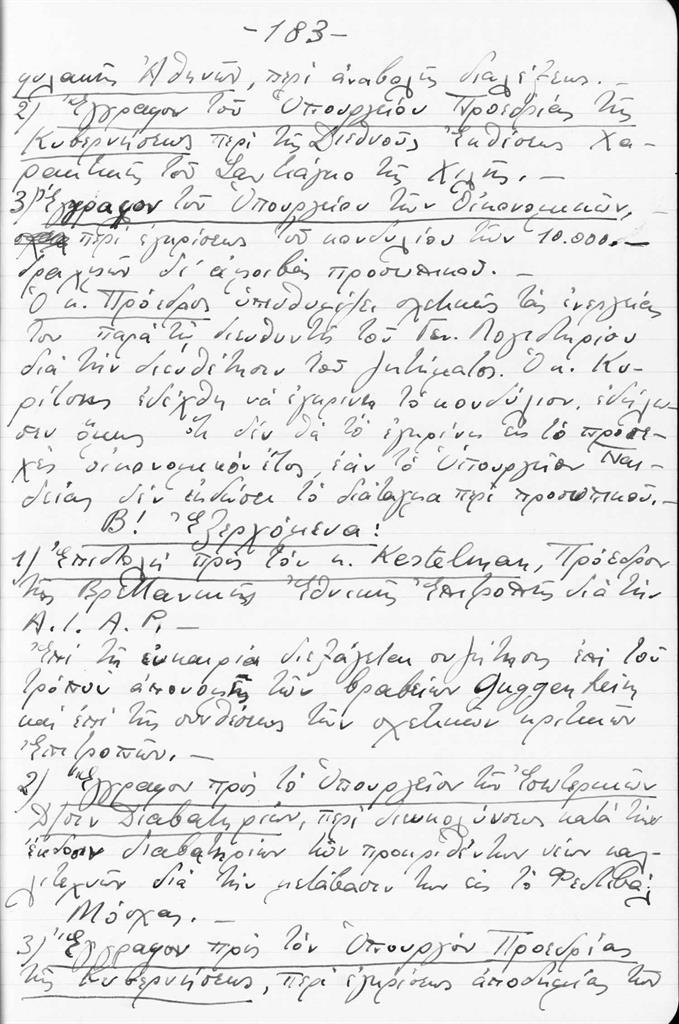 -183-
φυλακῆς Ἀθηνῶν, περὶ ἀναβολῆς διαλέξεως. -
2) Ἔγγραφον τοῦ Ὑπουργείου Προεδρίας τῆς
Κυβερνήσεως περὶ τῆς Διεθνοῦς Ἐκθέσεως Χα-
ρακτικῆς τοῦ Σαντιάγκο τῆς Χιλῆς. -
3) Ἔγγραφον τοῦ Ὑπουργείου τῶν Οἰκονομικῶν, -
περὶ ἐγκρίσεως τοῦ κονδυλίου τῶν 10.000.-
δραχμῶν δι' ἀμοιβὰς προσωπικοῦ. -
Ὁ κ. Πρόεδρος ὑπενθυμίζει σχετικῶς τὰς ἐνεργείας
του παρὰ τῇ διευθυντῇ τοῦ Γεν. Λογιστηρίου
διὰ τὴν διευθέτησιν τοῦ ζητήματος. Ὁ κ. Κυ-
ρίτσης ἐδέχθη νὰ ἐγκρίνῃ τὸ κονδύλιον, ἐδήλω-
σεν ὅμως ὅτι δὲν θὰ τὸ ἐγκρίνῃ εἰς τὸ προσε-
χὲς οἰκονομικὸν ἔτος, ἐὰν τὸ Ὑπουργεῖον Παι-
δείας δὲν ἐκδώσει τὸ διάταγμα περὶ προσωπικοῦ. -
Β! Ἐξερχόμενα:
1) Ἐπιστολὴ πρὸς τὸν κ. Kestelman, Πρόεδρον
τῆς Βρεττανικῆς Ἐθνικῆς Ἐπιτροπῆς διὰ τὴν
A.I.A.P. -
Ἐπὶ τῇ εὐκαιρίᾳ διεξάγεται συζήτησις ἐπὶ τοῦ
τρόπου ἀπονομῆς τῶν βραβείων Guggenheim
καὶ ἐπὶ τῆς συνθέσεως τῶν σχετικῶν κριτικῶν
Ἐπιτροπῶν. -
2) Ἔγγραφον πρὸς τὸ Ὑπουργεῖον τῶν Ἐσωτερικῶν
Δ/σιν Διαβατηρίων, περὶ διευκολύνσεως κατὰ τὴν
ἔκδοσιν διαβατηρίων τῶν προκριθέντων νέων καλ-
λιτεχνῶν διὰ τὴν μετάβασίν των εἰς τὸ Φεστιβὰλ
Μόσχας. -
3) Ἔγγραφον πρὸς τὸν Ὑπουργὸν Προεδρίας
τῆς Κυβερνήσεως, περὶ ἐγκρίσεως ἀποδημίας τῶν